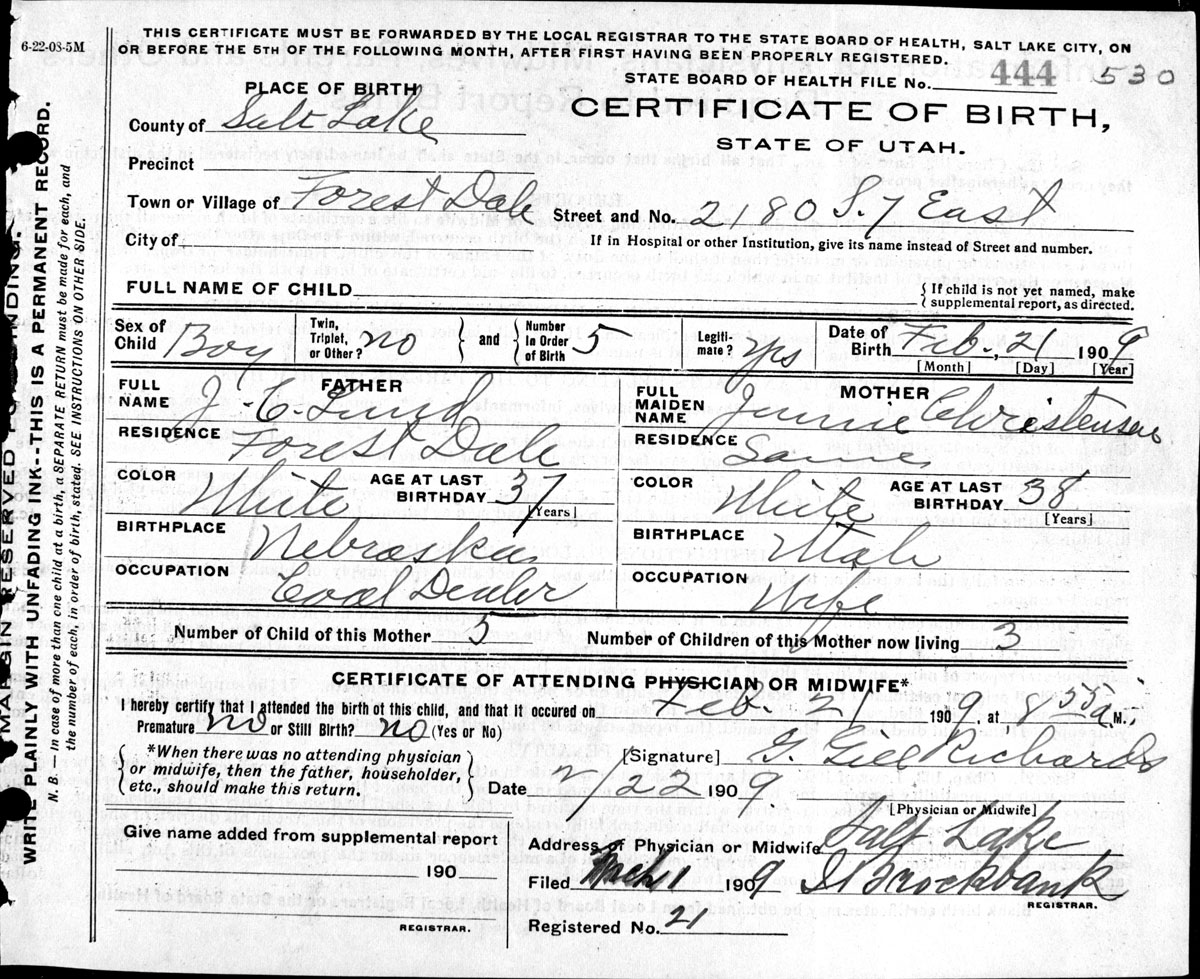 6-22-08-5M
THIS CERTIFICATE MUST BE FORWARDED BY THE LOCAL REGISTRAR TO THE STATE BOARD OF HEALTH, SALT LAKE CITY, ON
OR BEFORE THE 5TH OF THE FOLLOWING MONTH, AFTER FIRST HAVING BEEN PROPERLY REGISTERED.
STATE BOARD OF HEALTH FILE No. 444 530
PLACE OF BIRTH
CERTIFICATE OF BIRTH,
STATE OF UTAH.
County of Salt Lake
Precinct
Town or Village of Forest Dale Street and No. 2180 S. 7 East
City of If in Hospital or other Institution, give its name instead of Street and number.
FULL NAME OF CHILD { If child is not yet named, make supplemental report, as directed.
Sex of Child Boy Twin, Triplet, or Other? no } and { Number in Order of Birth 5 Legitimate? Yes Date of Birth Feb., 21 1909
[Month] [Day] [Year]
FATHER MOTHER
FULL NAME J. C. Lund FULL MAIDEN NAME Jennie Christensen
RESIDENCE Forest Dale RESIDENCE Same
COLOR White AGE AT LAST BIRTHDAY 37 [Years] COLOR White AGE AT LAST BIRTHDAY 38 [Years]
BIRTHPLACE Nebraska BIRTHPLACE Utah
OCCUPATION Coal Dealer OCCUPATION Wife
Number of Child of this Mother 5 Number of Children of this Mother now living 3
CERTIFICATE OF ATTENDING PHYSICIAN OR MIDWIFE*
I hereby certify that I attended the birth of this child, and that it occured on Feb. 21 1909, at 8 55 a M.,
Premature no or Still Birth? no (Yes or No)
{ *When there was no attending physician or midwife, then the father, householder, etc., should make this return. }
[Signature] G. Gill Richards
Date 2/22 1909.
[Physician or Midwife]
Give name added from supplemental report
190
REGISTRAR.
Address of Physician or Midwife Salt Lake
Filed Mch 1 1909 Brockbank
REGISTRAR.
Registered No. 21
MARGIN RESERVED BINDING.
WRITE PLAINLY WITH UNFADING INK--THIS IS A PERMANENT RECORD.
N. B. — In case of more than one child at a birth, a SEPARATE RETURN must be made for each, and
the number of each, in order of birth, stated. SEE INSTRUCTIONS ON OTHER SIDE.